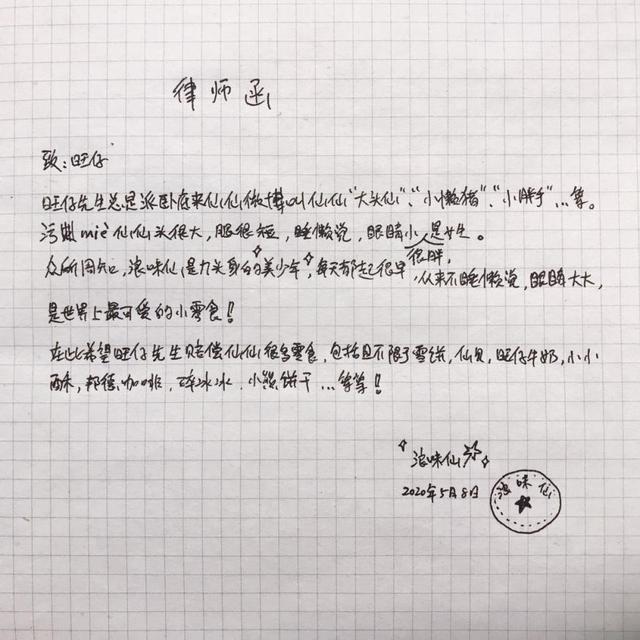 律师函
致：旺仔
旺仔先生总是派卧底来仙仙微博叫仙仙“大头仙”、“小懒猪”、“小胖手”…等。
污蔑miè仙仙头很大，腿很短，睡懒觉，眼睛小，很胖，是女生。
众所周知，浪味仙是九头身的“美少年”，每天都起很早，从来不睡懒觉，眼睛大大，
是世界上最可爱的小零食！
在此希望旺仔先生赔偿仙仙很多零食，包括且不限于雪饼，仙贝，旺仔牛奶，小小
酥，邦德咖啡，碎冰冰，小熊饼干…等等！
浪味仙
2020年5月8日
浪味仙